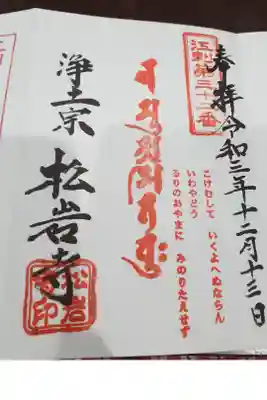 江刺第三十二番
奉拝
令和三年十二月十三日
こけむして いくよへぬならん
いわやどう
るりのおやまに みのりたえせず
浄土宗
松岩寺
松岩寺印